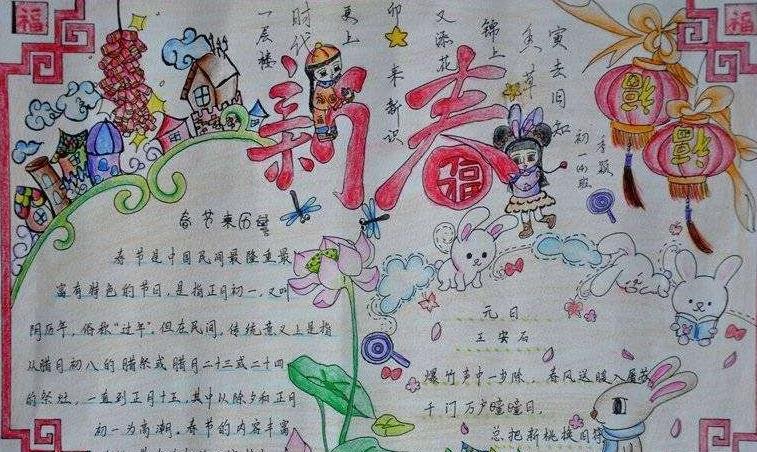 福
福
寅去旧知
锦上
又添花
卯
来新识
更上
时代
一层楼
初一(4)班
新春
福
福
福
春节来历
春节是中国民间最隆重最
富有特色的节日，是指正月初一，又叫
阴历年，俗称“过年”，但在民间，传统意义上是指
从腊月初八的腊祭或腊月二十三或二十四
的祭灶，一直到正月十五，其中以除夕和正月
初一为高潮。春节的内容丰富
元日
王安石
爆竹声中一岁除，春风送暖入屠苏
千门万户瞳瞳日，
总把新桃换旧符